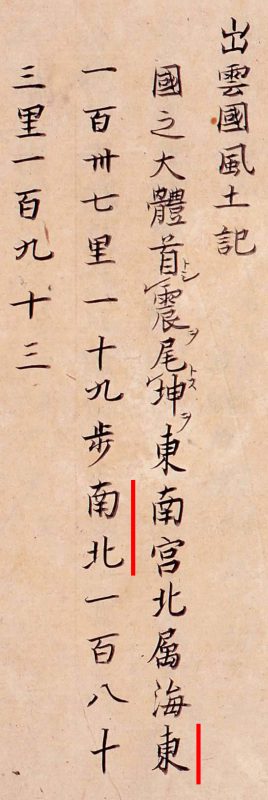 出雲國風土記
國之大體首震尾坤東南宮北属海東
一百卅七里一十九歩南北一百八十
三里一百九十三